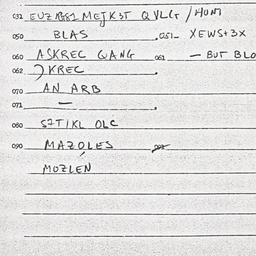 032 EUZ MEJK3T Q VLG / HUM
050 BLAS .051- XEWS+3X
060 ASKREC GANG 061 - BUT BLO
062 KREC
070 AN ARB
071 —
080 SZTIKL OLC
090 MAZOLES
MOZLEN